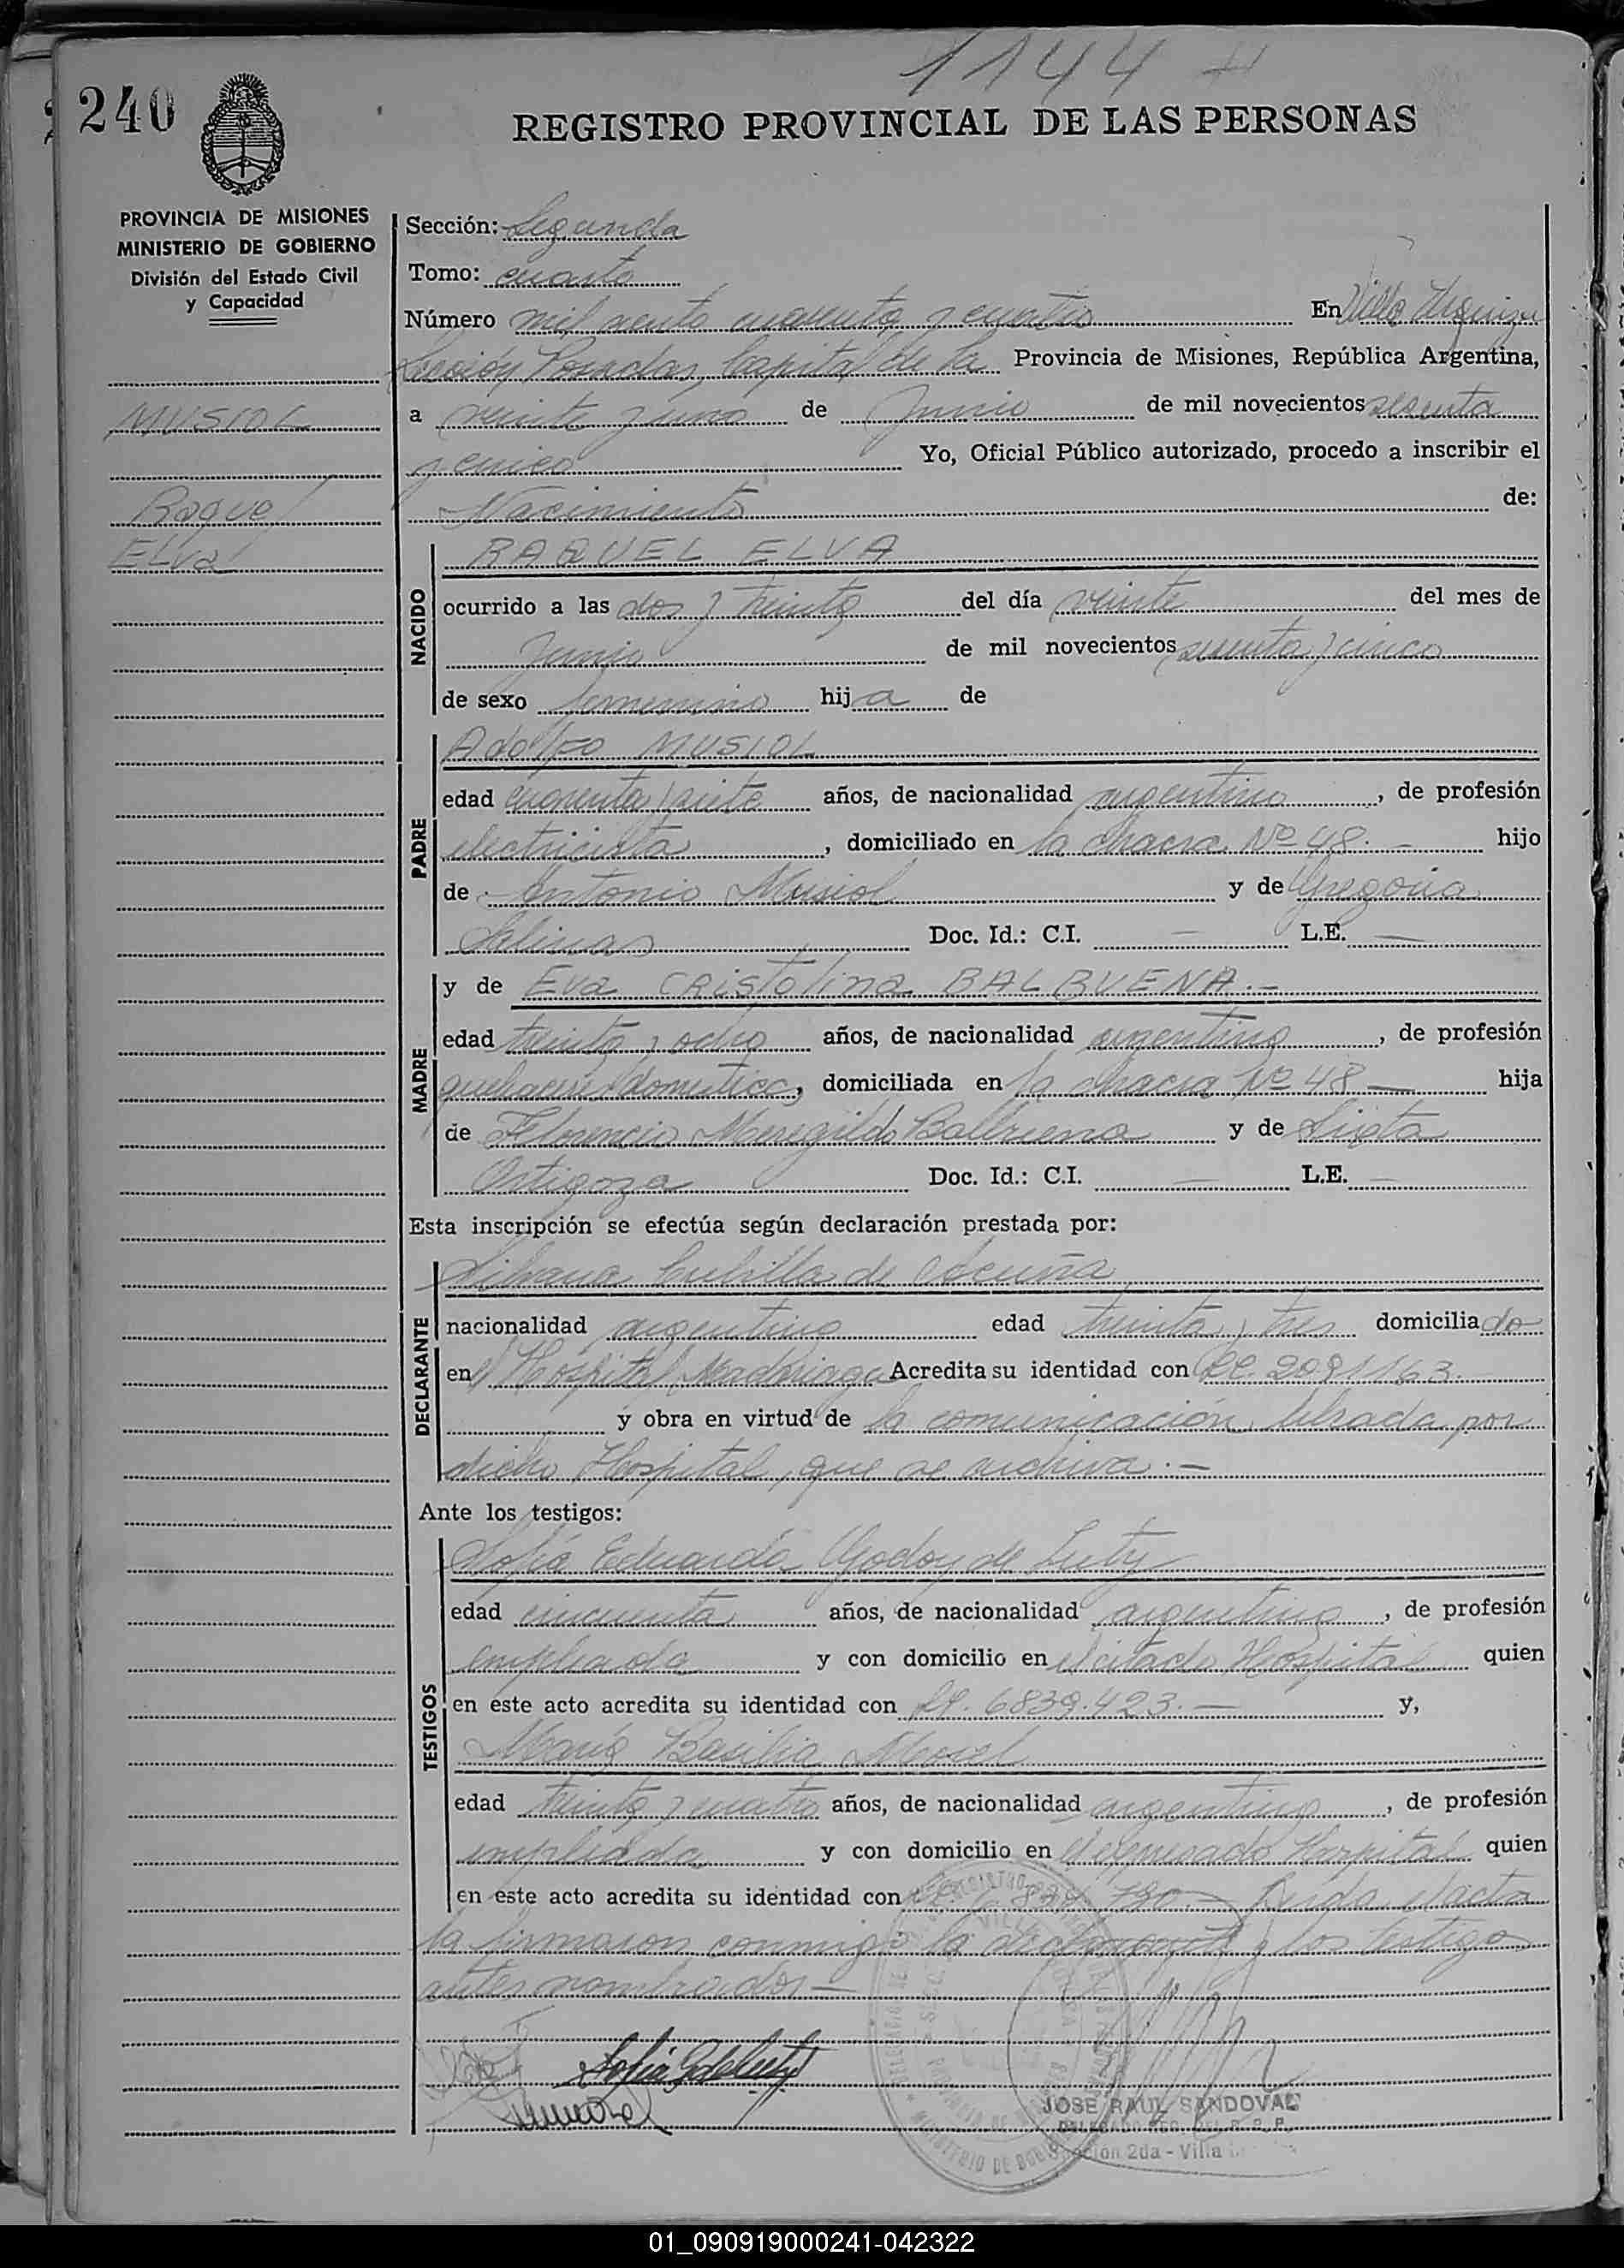 1144
240
REGISTRO PROVINCIAL DE LAS PERSONAS
PROVINCIA DE MISIONES
MINISTERIO DE GOBIERNO
División del Estado Civil
y Capacidad
MUSIOL
Raquel
ELva
Sección: Segunda
Tomo: cuarto
Número mil ciento cuarenta y cuatro En Villa Urquiza
Sección Posadas, Capital de la Provincia de Misiones, República Argentina,
a veinte y uno de Junio de mil novecientos sesenta
y cinco Yo, Oficial Público autorizado, procedo a inscribir el
Nacimiento de:
NACIDO
RAQUEL ELVA
ocurrido a las dos y treinta del día veinte del mes de
Junio de mil novecientos sesenta y cinco
de sexo femenino hija de
PADRE
Adolfo MUSIOL
edad cuarenta y siete años, de nacionalidad argentino, de profesión
electricista, domiciliado en la chacra Nº 48.- hijo
de Antonio Musiol y de Gregoria
Salinas Doc. Id.: C.I. — L.E. —
MADRE
y de Eva CRistolina BALBUENA.-
edad treinta y ocho años, de nacionalidad argentina, de profesión
quehacer domestico, domiciliada en la chacra Nº 48 — hija
de Florencio Meregildo Balbuena y de Sixta
Ortigoza Doc. Id.: C.I. — L.E. —
Esta inscripción se efectúa según declaración prestada por:
DECLARANTE
Silvana Cubilla de Acuña
nacionalidad argentina edad treinta y tres domiciliado
en el Hospital Madariaga Acredita su identidad con LC. 2091163.
y obra en virtud de la comunicación librada por
dicho Hospital, que se archiva.-
Ante los testigos:
TESTIGOS
Sofía Eduarda Godoy de Luty
edad cincuenta años, de nacionalidad argentina, de profesión
empleada y con domicilio en el citado Hospital quien
en este acto acredita su identidad con LC. 6839.423.— y,
María Basilia Morel
edad treinta y cuatro años, de nacionalidad argentina, de profesión
empleada y con domicilio en el expresado Hospital quien
en este acto acredita su identidad con Leída el acta
la firmaron conmigo la declarante y los testigos
antes nombrados—
JOSE RAUL SANDOVAL
Sección 2da - Villa
01_090919000241-042322